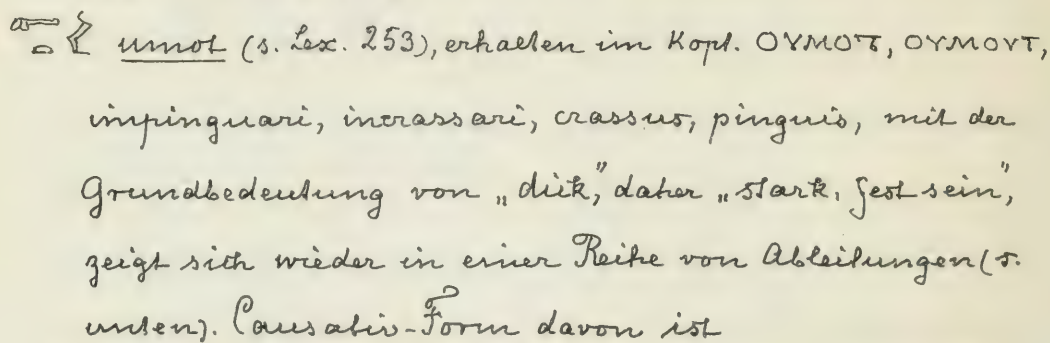 umot (s. Lex. 253), erhalten im Kopt. ⲞⲨⲘⲞⲦ, ⲞⲨⲘⲞⲨⲦ,
impinguari, incrassari, crassus, pinguis, mit der
Grundbedeutung von „dick,” daher „stark, fest sein”,
zeigt sich wieder in einer Reihe von Ableitungen (s.
unten). Causativ-Form davon ist